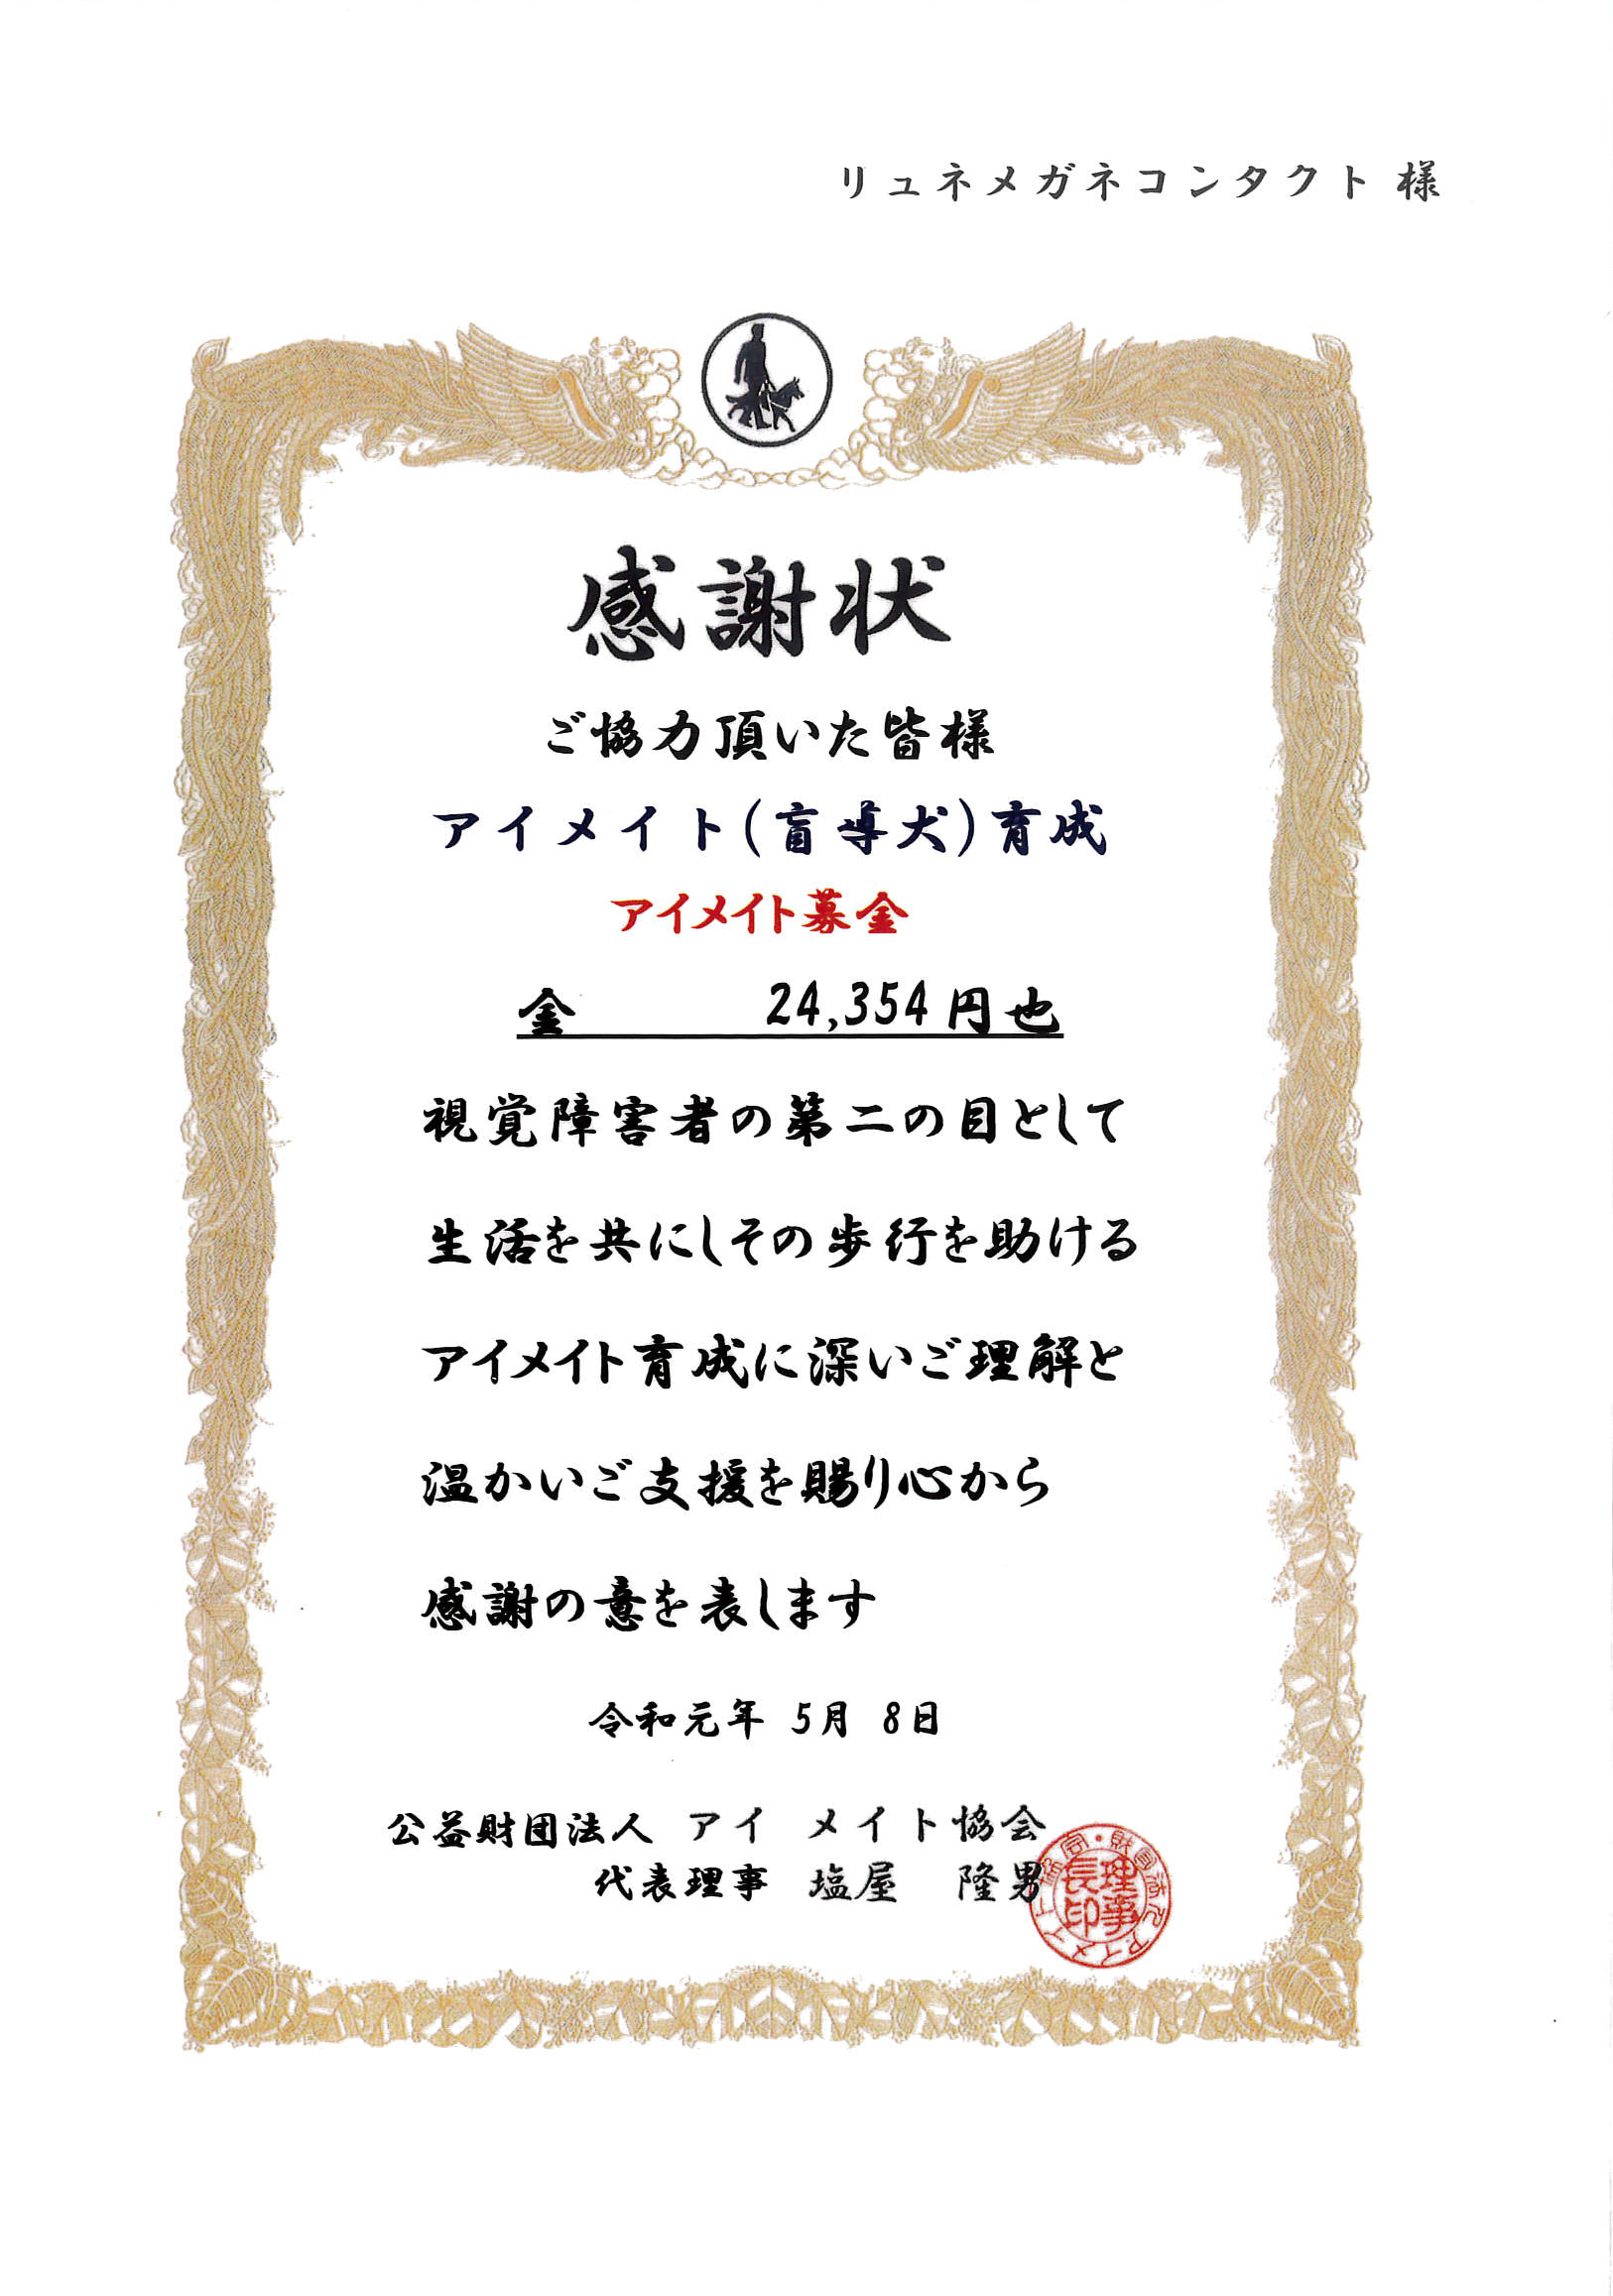 リュネメガネコンタクト 様
感謝状
ご協力頂いた皆様
アイメイト(盲導犬)育成
アイメイト募金
金 24,354円也
視覚障害者の第二の目として
生活を共にしその歩行を助ける
アイメイト育成に深いご理解と
温かいご支援を賜り心から
感謝の意を表します
令和元年 5月 8日
公益財団法人 アイメイト協会
代表理事 塩屋 隆男
理事長印